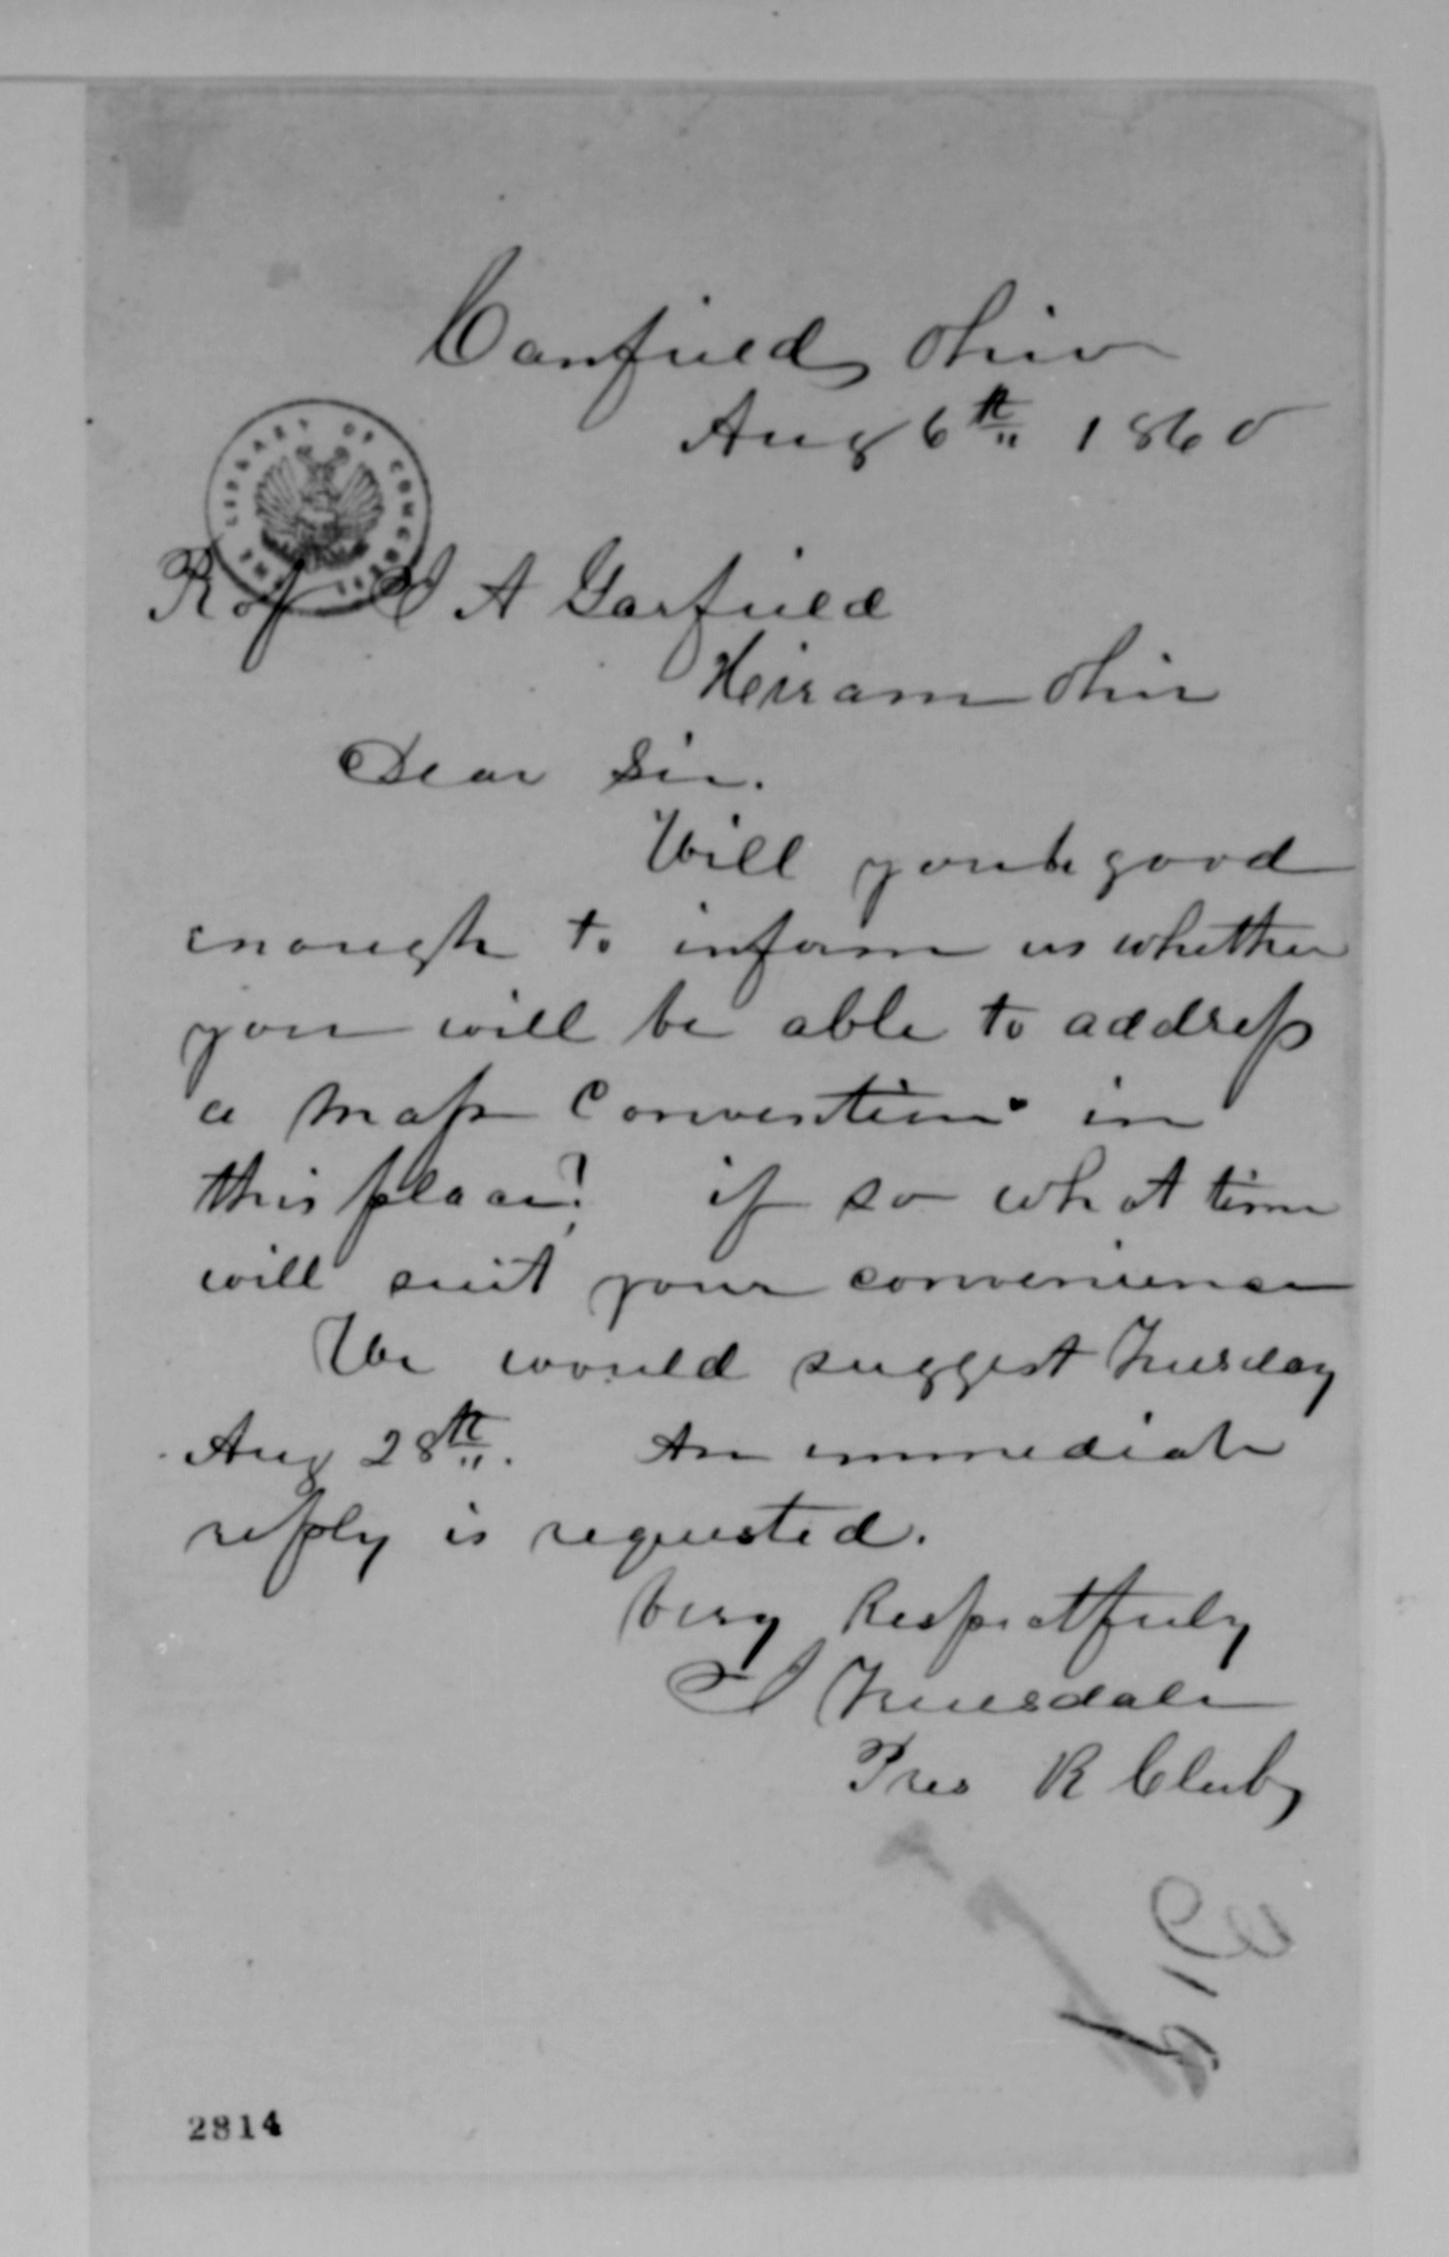 Canfield Ohio
Aug 6th 1860
THE LIBRARY OF CONGRESS
Prof J A Garfield
Heiram Ohio
Dear Sir.
Will you be good
enough to inform us whether
you will be able to address
a mass Convention in
this place? if so what time
will suit your convenience
We would suggest Tuesday
Aug 28th. An immediate
reply is requested.
Very Respectfuly
J Truesdale
Pres R Club
2814